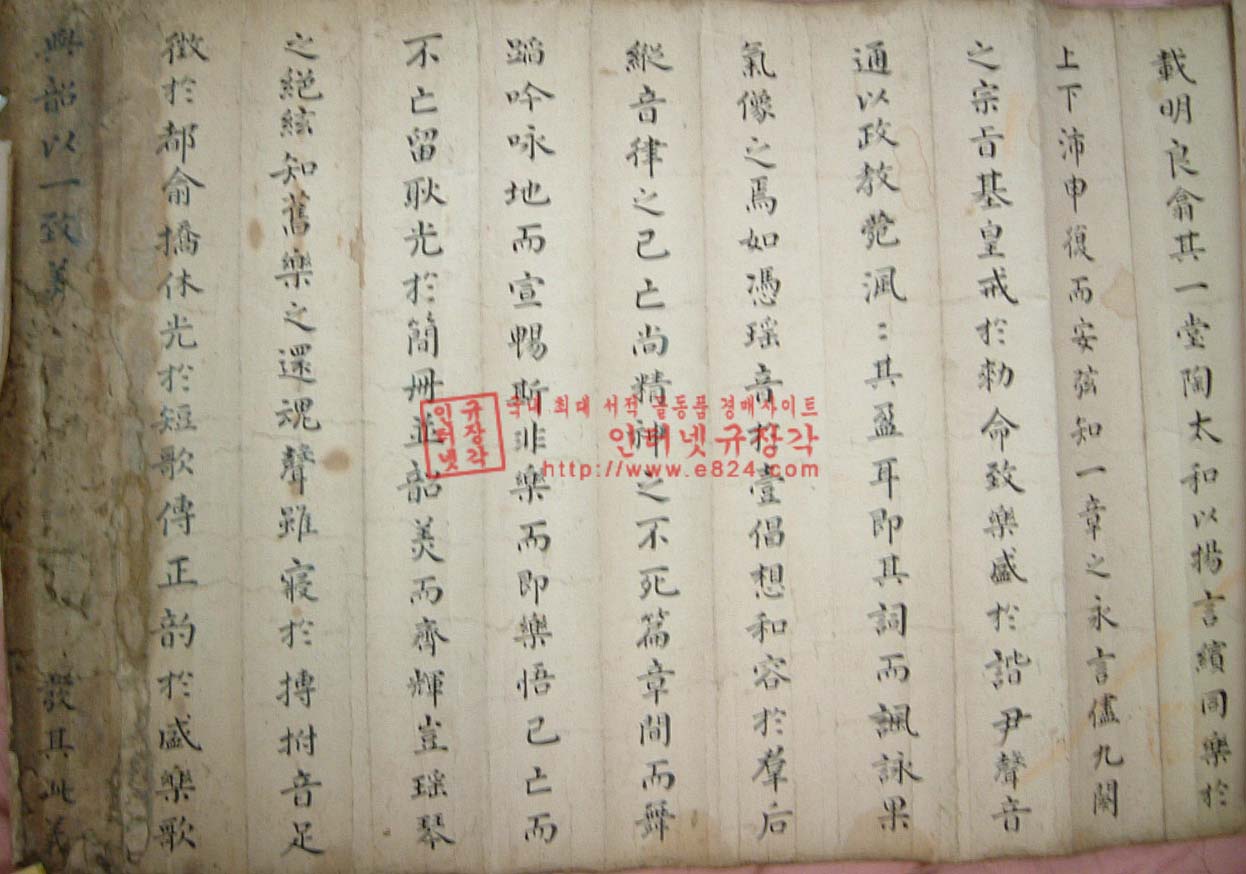 載明良兪其一堂陶太和以揚言繽同樂於
上下沛申復而安弦知一章之永言儘九闋
之宗旨基皇戒於勅命致樂盛於諧尹聲音
通以政教菀渢〻其盈耳即其詞而諷詠果
氣像之焉如憑瑤音於壹倡想和容於羣后
縱音律之已亡尚精神之不死篇章間而舞
蹈吟咏地而宣暢斯非樂而即樂悟已亡而
不亡留耿光於簡冊並韶美而齊輝豈瑤琴
之絕絃知舊樂之還魂聲雖寢於搏拊音足
徵於都兪撟休光於短歌傳正韵於盛樂歌
與韶以一致美 發其此義
국내 최대 서적 골동품 경매사이트
인터넷규장각
http://www.e824.com
규장각
인터넷